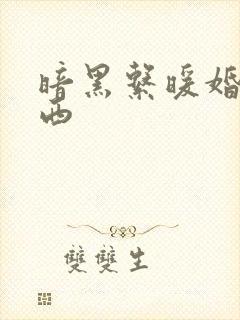 暗黑系暖婚
西
雙雙生